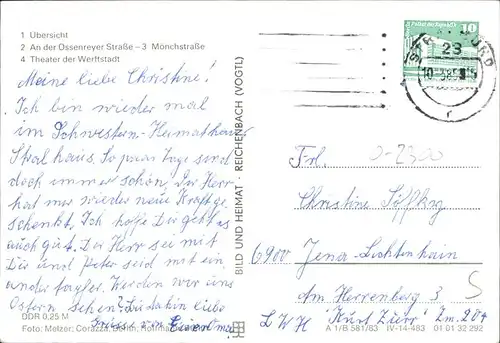 1 Übersicht
2 An der Ossenreyer Straße – 3 Mönchstraße
4 Theater der Werftstadt
Meine liebe Christine!
Ich bin wieder mal
im Schwestern-Heimathaus
Stralhaus. So paar Tage sind
doch immer schön. Der Herr
hat mir wieder neue Kraft ge-
schenkt. Ich hoffe Dir geht es
auch gut. Der Herr sei mit
Dir und Peter seid mit ein-
ander
Ostern sehen? Bis dahin liebe
Grüsse von Omi
DDR 0,25 M
Foto: Melzer; Corazza, Berlin; Hoffmann
BILD UND HEIMAT · REICHENBACH (VOGTL)
10
23
Frl. 0-2300
Christine
6900 Jena-Lichtenhain
Am Herrenberg 3
LWH "Kurt Zürr" Zm. 204
5
A 1/B 581/83 IV-14-483 01 01 32 292